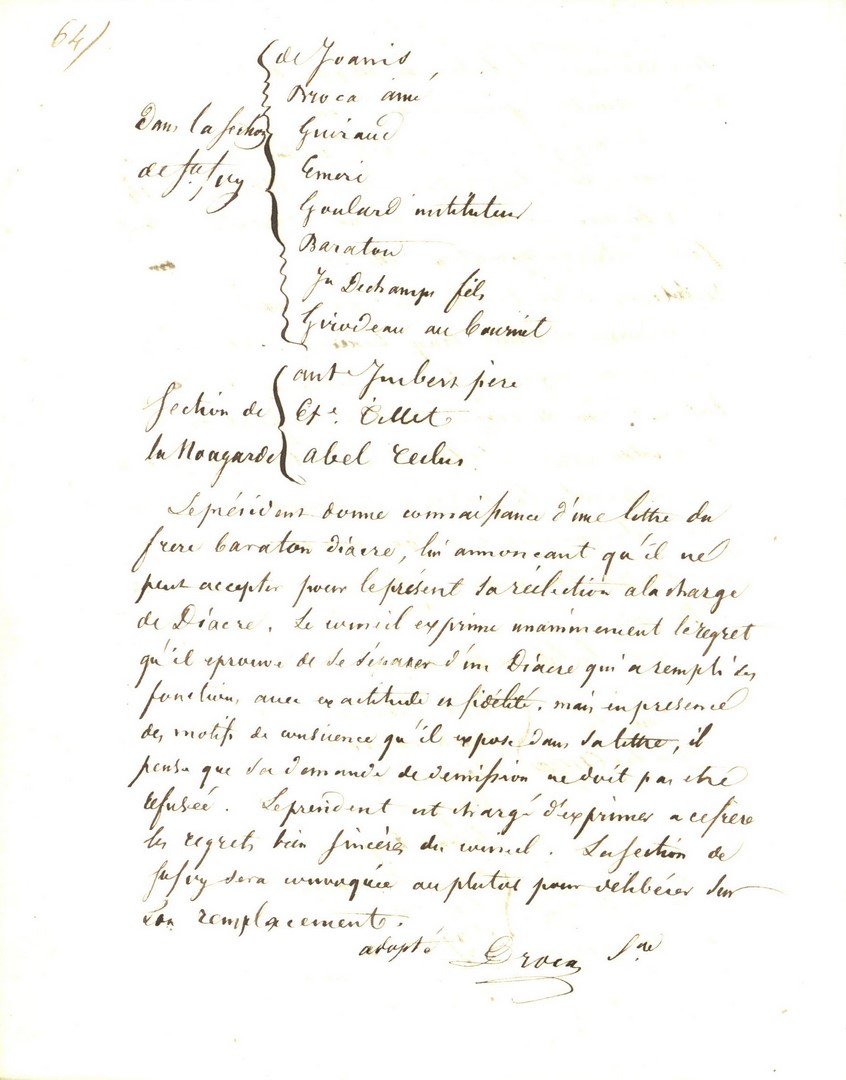 64/
de Joanis
Broca ainé
Dans la section
Guiraud
de Ste foy
Emeri
Goulard instituteur
Baraton
Jn Dechamps fils
Girodeau au
ant Imbert père
Section de
Ete. Tillet
la Nougarède
abel reclus
Le président donne connaissance d'une lettre du
frere baraton diacre, lui annoncant qu'il ne
peut accepter pour le présent sa réélection a la charge
de Diacre. Le conseil exprime unanimement le regret
qu'il eprouve de se séparer d'un Diacre qui a rempli ses
fonctions avec exactitude et fidélité. mais en presence
des motifs de conscience qu'il expose dans sa lettre, il
pense que sa demande de demission ne doit pas etre
refusée. Le président est chargé d'exprimer a ce frere
les regrets bien sincères du conseil. La section de
Ste foy sera convoquée au plutot pour délibérer sur
son remplacement.
adopté Broca Sre